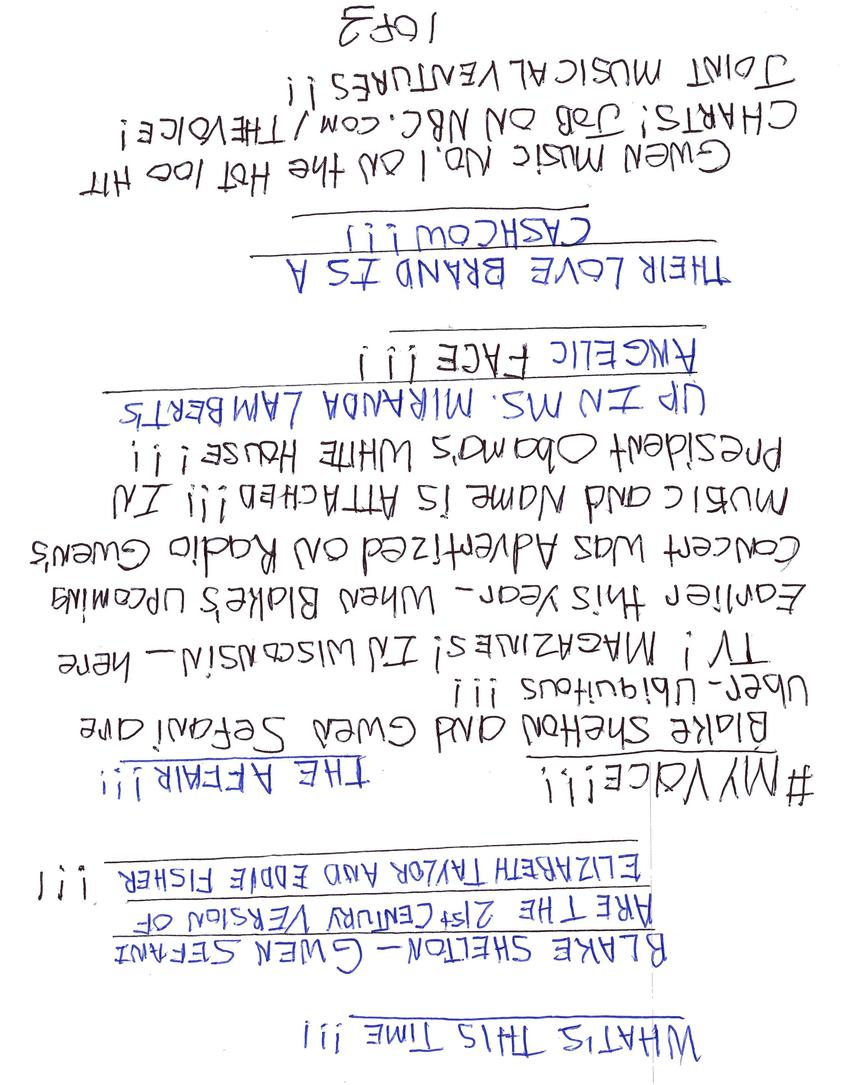 WHAT'S THIS TIME !!!
BLAKE SHELTON - GWEN SEFANI
ARE THE 21st CENTURY VERSION OF
ELIZABETH TAYLOR AND EDDIE FISHER !!!
#MY VOICE!!! THE AFFAIR!!!
Blake Shelton and Gwen Sefani are
Uber-Ubiquitous !!!
TV! MAGAZINES! IN WISCONSIN - here
Earlier this year - when Blake's upcoming
Concert was Advertized on Radio Gwen's
music and Name is ATTACHED!!! IN
President Obama's WHITE HOUSE!!!
UP IN MS. MIRANDA LAMBERT'S
ANGELIC FACE !!!
THEIR LOVE BRAND IS A
CASHCOW!!!
Gwen Music No. 1 on the HOT 100 HIT
CHARTS! JOB ON NBC.COM/THEVOICE!
JOINT MUSICAL VENTURES!!
1 OF 2